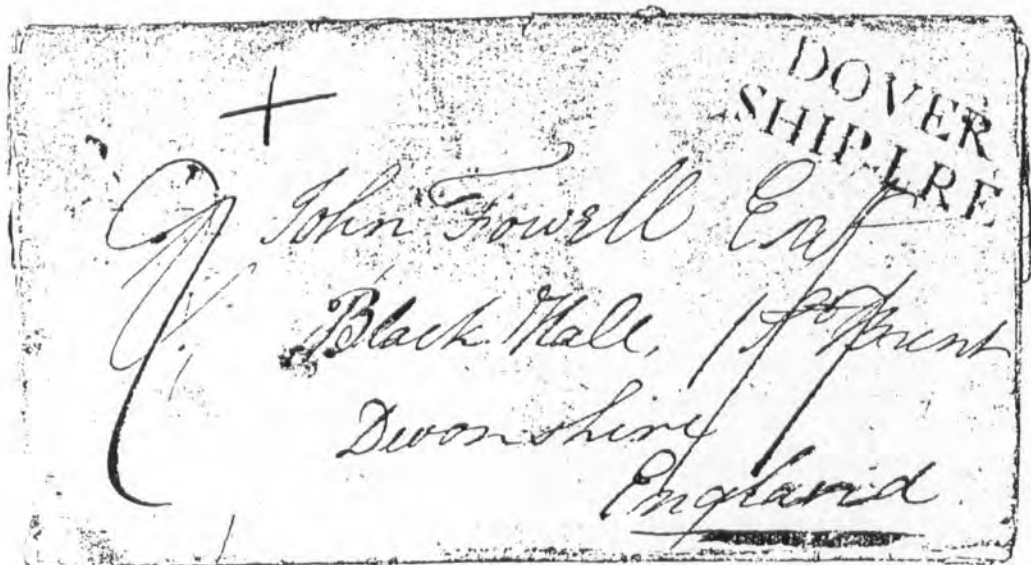 DOVER
SHIP-LRE
John Fowell Esq
Black Hall, Brent
Devonshire
England